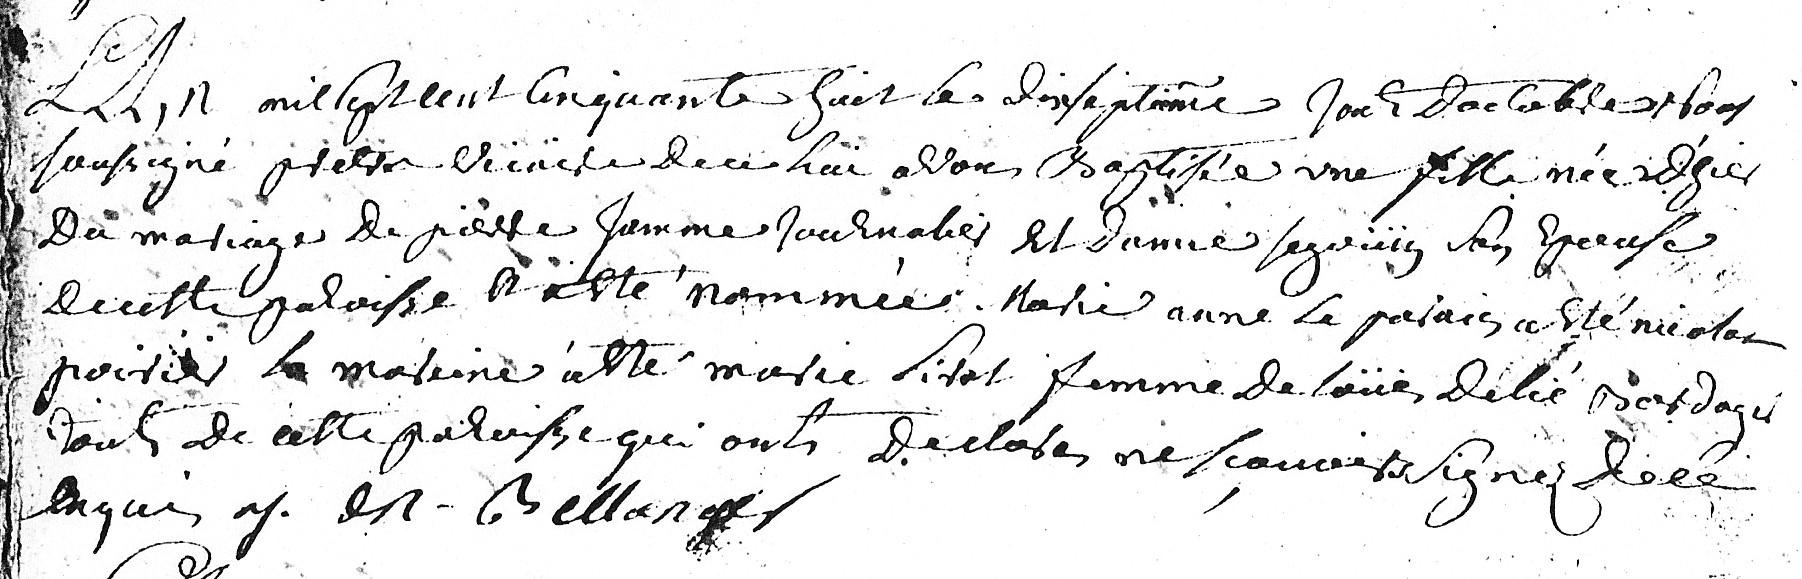 L'An mil sept cent cinquante huit le dixseptiême jour d'octobre nous
soussigné prêtre viccire de ce lieu avons Baptisée une fille née d'hier
du mariage de pierre jamme journalier et damie segouin son epouse
de cette paroisse et a esté nommée Marie anne le parain a esté nicolas
poirier la maraine a esté marie livet femme de loüis delié Bordager
touts de cette paroisse qui onts declarés ne sçauoir signer de ce
enquis &. DR - Bellanger